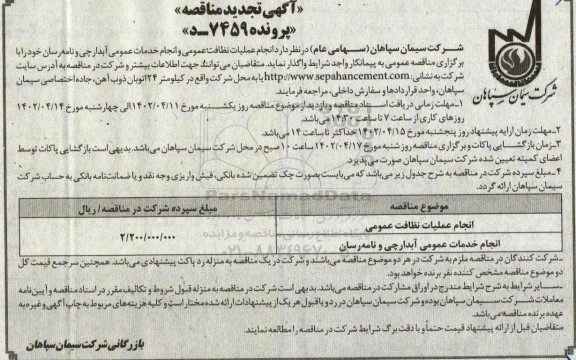 «آگهی تجدید مناقصه»
«پرونده ۷۴۵۹ـد»
شرکت سیمان سپاهان
شرکت سیمان سپاهان (سهامی عام) در نظر دارد انجام عملیات نظافت عمومی و انجام خدمات عمومی آبدارچی و نامه رسان خود را با
برگزاری مناقصه عمومی به پیمانکار واجد شرایط واگذار نماید. متقاضیان می توانند جهت اطلاعات بیشتر و شرکت در مناقصه به آدرس سایت
شرکت به نشانی: http://www.sepahancement.com یا به محل شرکت واقع در کیلومتر ۲۴ اتوبان ذوب آهن، جاده اختصاصی سیمان
سپاهان، واحد قراردادها و سفارش داخلی، مراجعه فرمایند.
۱ـ مهلت زمانی دریافت اسناد مناقصه و بازدید از موضوع مناقصه روز یکشنبه مورخ ۱۴۰۲/۰۴/۱۱ الی چهارشنبه مورخ ۱۴۰۲/۰۴/۱۴
روزهای کاری از ساعت ۷ تا ساعت ۱۴:۳۰ می باشد.
۲ـ مهلت زمان ارایه پیشنهاد روز پنجشنبه مورخ ۱۴۰۲/۰۴/۱۵ حداکثر تا ساعت ۱۴ می باشد.
۳ـ زمان بازگشایی پاکات و برگزاری مناقصه روز شنبه مورخ ۱۴۰۲/۰۴/۱۷ ساعت ۱۰ صبح در محل شرکت سیمان سپاهان می باشد. بدیهی است بازگشایی پاکات توسط
اعضای کمیته تعیین شده شرکت سیمان سپاهان صورت می پذیرد.
۴ـ مبلغ سپرده شرکت در مناقصه به شرح جدول زیر می باشد که می بایست بصورت چک تضمین شده بانکی، فیش واریزی وجه نقد و یا ضمانت نامه بانکی به حساب شرکت
سیمان سپاهان ارائه گردد.
موضوع مناقصه مبلغ سپرده شرکت در مناقصه / ریال
انجام عملیات نظافت عمومی
۲/۲۰۰/۰۰۰/۰۰۰
انجام خدمات عمومی آبدارچی و نامه رسان
ـ شرکت کنندگان در مناقصه ملزم به شرکت در هر دو موضوع مناقصه می باشند و شرکت در یک مناقصه به منزله رد پاکت پیشنهادی می باشد. همچنین سرجمع قیمت کل
دو موضوع مناقصه مشخص کننده نفر برنده خواهد بود.
ـ سایر شرایط به شرح شرایط مندرج در اوراق مشارکت در مناقصه می باشد. بدیهی است شرکت در مناقصه به منزله قبول شروط و تکالیف مقرر در اسناد مناقصه و آیین نامه
معاملات شرکت سیمان سپاهان بوده و شرکت سیمان سپاهان در رد و یا قبول هر یک از پیشنهادات ارائه شده مختار است و کلیه هزینه های مربوط به چاپ آگهی و غیره به
عهده برنده مناقصه می باشد.
متقاضیان قبل از ارائه پیشنهاد قیمت حتماً و با دقت برگ شرایط شرکت در مناقصه را مطالعه نمایند.
بازرگانی شرکت سیمان سپاهان